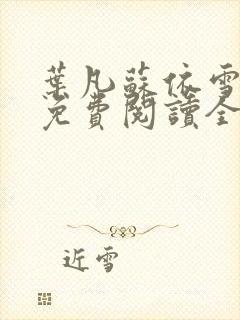 葉凡蘇依雪
免費閱讀全
近雪